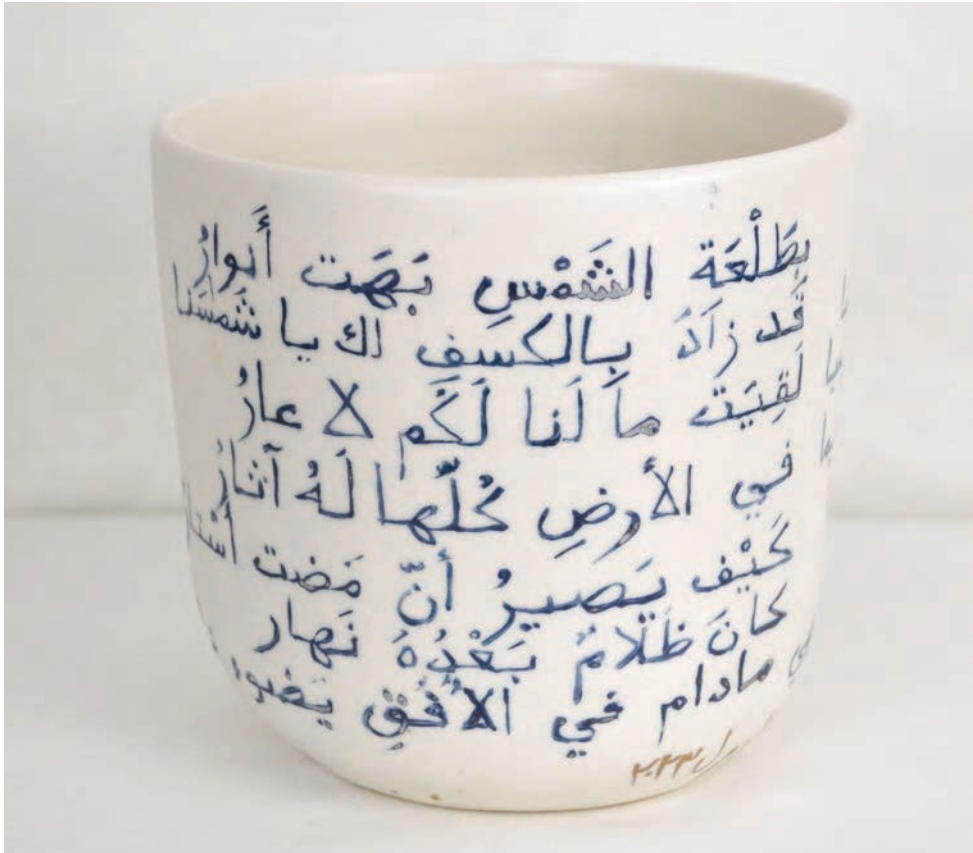 بِطَلْعَة الشَّمْسِ بَهَت أَنوارُ
قَد زادَ بِالكسَفِ لك يا شَمسَنا
لَقِيَت ما لَنا لَكُم لا عارُ
في الأَرضِ كُلّها لَهُ آثارُ
كَيْف يَصيرُ أَنّ مَضت
كانَ ظَلامٌ بَعْدُهُ نَهار
مادام في الأُفُقِ
٢٠٢٣